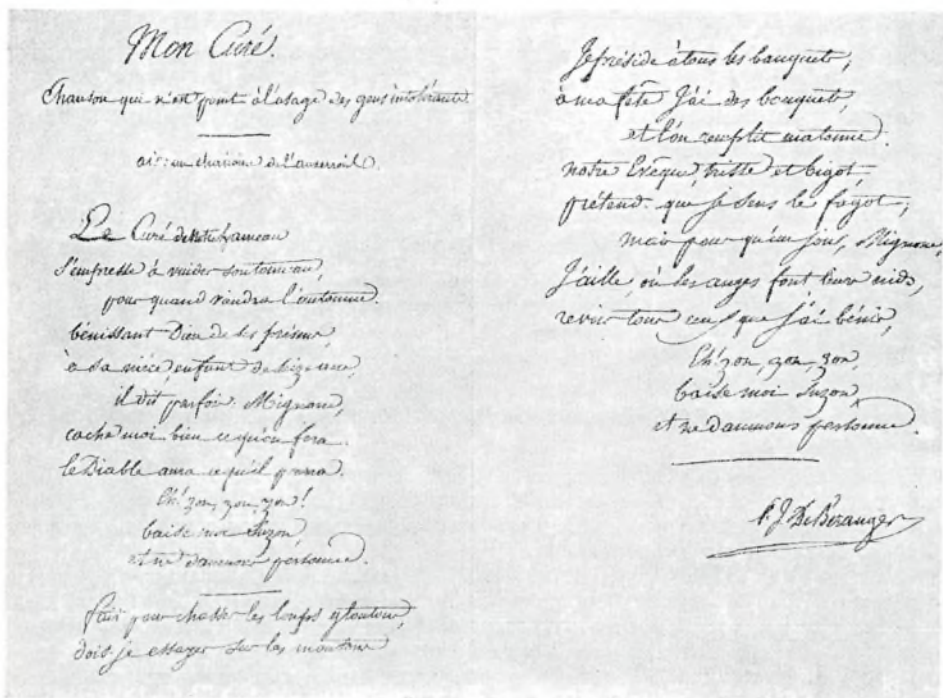 Mon Curé.
Chanson qui n'est point à l'usage des gens intolérants
air: un chanoine de l'auxerrois.
Le Curé de notre hameau
s'empresse à vuider son tonneau,
pour quand viendra l'automne.
bénissant Dieu de ses présens,
à sa nièce, enfant de seize ans,
il dit parfois: Mignone,
cache moi bien ce qu'on fera
le Diable aura ce qu'il pourra.
Eh! zon, zon, zon!
baise moi Suzon
et ne damnons personne.
fais pour chasser les loups gloutons,
dois-je essayer sur les moutons
Je préside à tous les banquets,
à ma fête J'ai des bouquets,
et l'on remplit ma tonne.
notre Evêque, triste et bigot,
prétend que je sens le fagot;
mais pour qu'un jour, Mignone,
J'aille, où les anges font leurs nids,
revoir tous ceux que j'ai bénis,
Eh! zon, zon, zon,
baise moi Suzon,
et ne damnons personne.
P. J. De Béranger